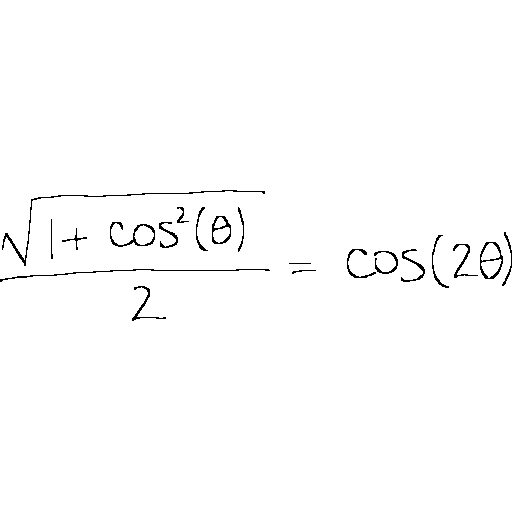 \frac{\sqrt{1+\cos^2(\theta)}}{2} = \cos(2\theta)